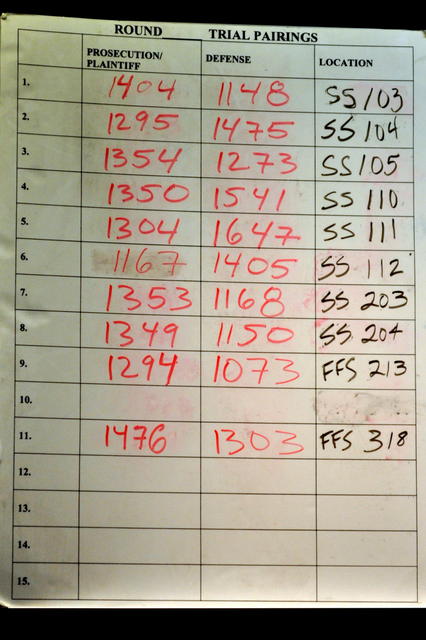 ROUND TRIAL PAIRINGS
PROSECUTION/ PLAINTIFF DEFENSE LOCATION
1. 1404 1148 SS 103
2. 1295 1475 SS 104
3. 1354 1273 SS 105
4. 1350 1541 SS 110
5. 1304 1647 SS 111
6. 1167 1405 SS 112
7. 1353 1168 SS 203
8. 1349 1150 SS 204
9. 1294 1073 FFS 213
10.
11. 1476 1303 FFS 318
12.
13.
14.
15.